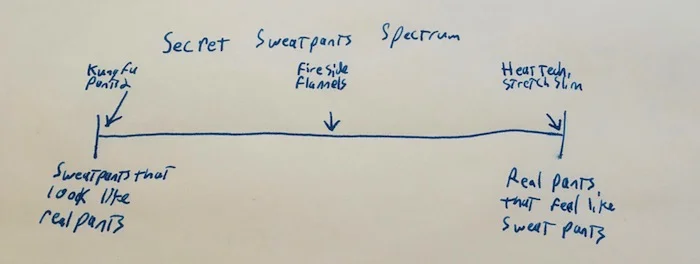 Secret Sweatpants Spectrum
Kung Fu
Pants
Fireside
Flannels
Heat Tech,
Stretch Slim
Sweatpants that
look like
real pants
Real pants
that feel like
sweat pants